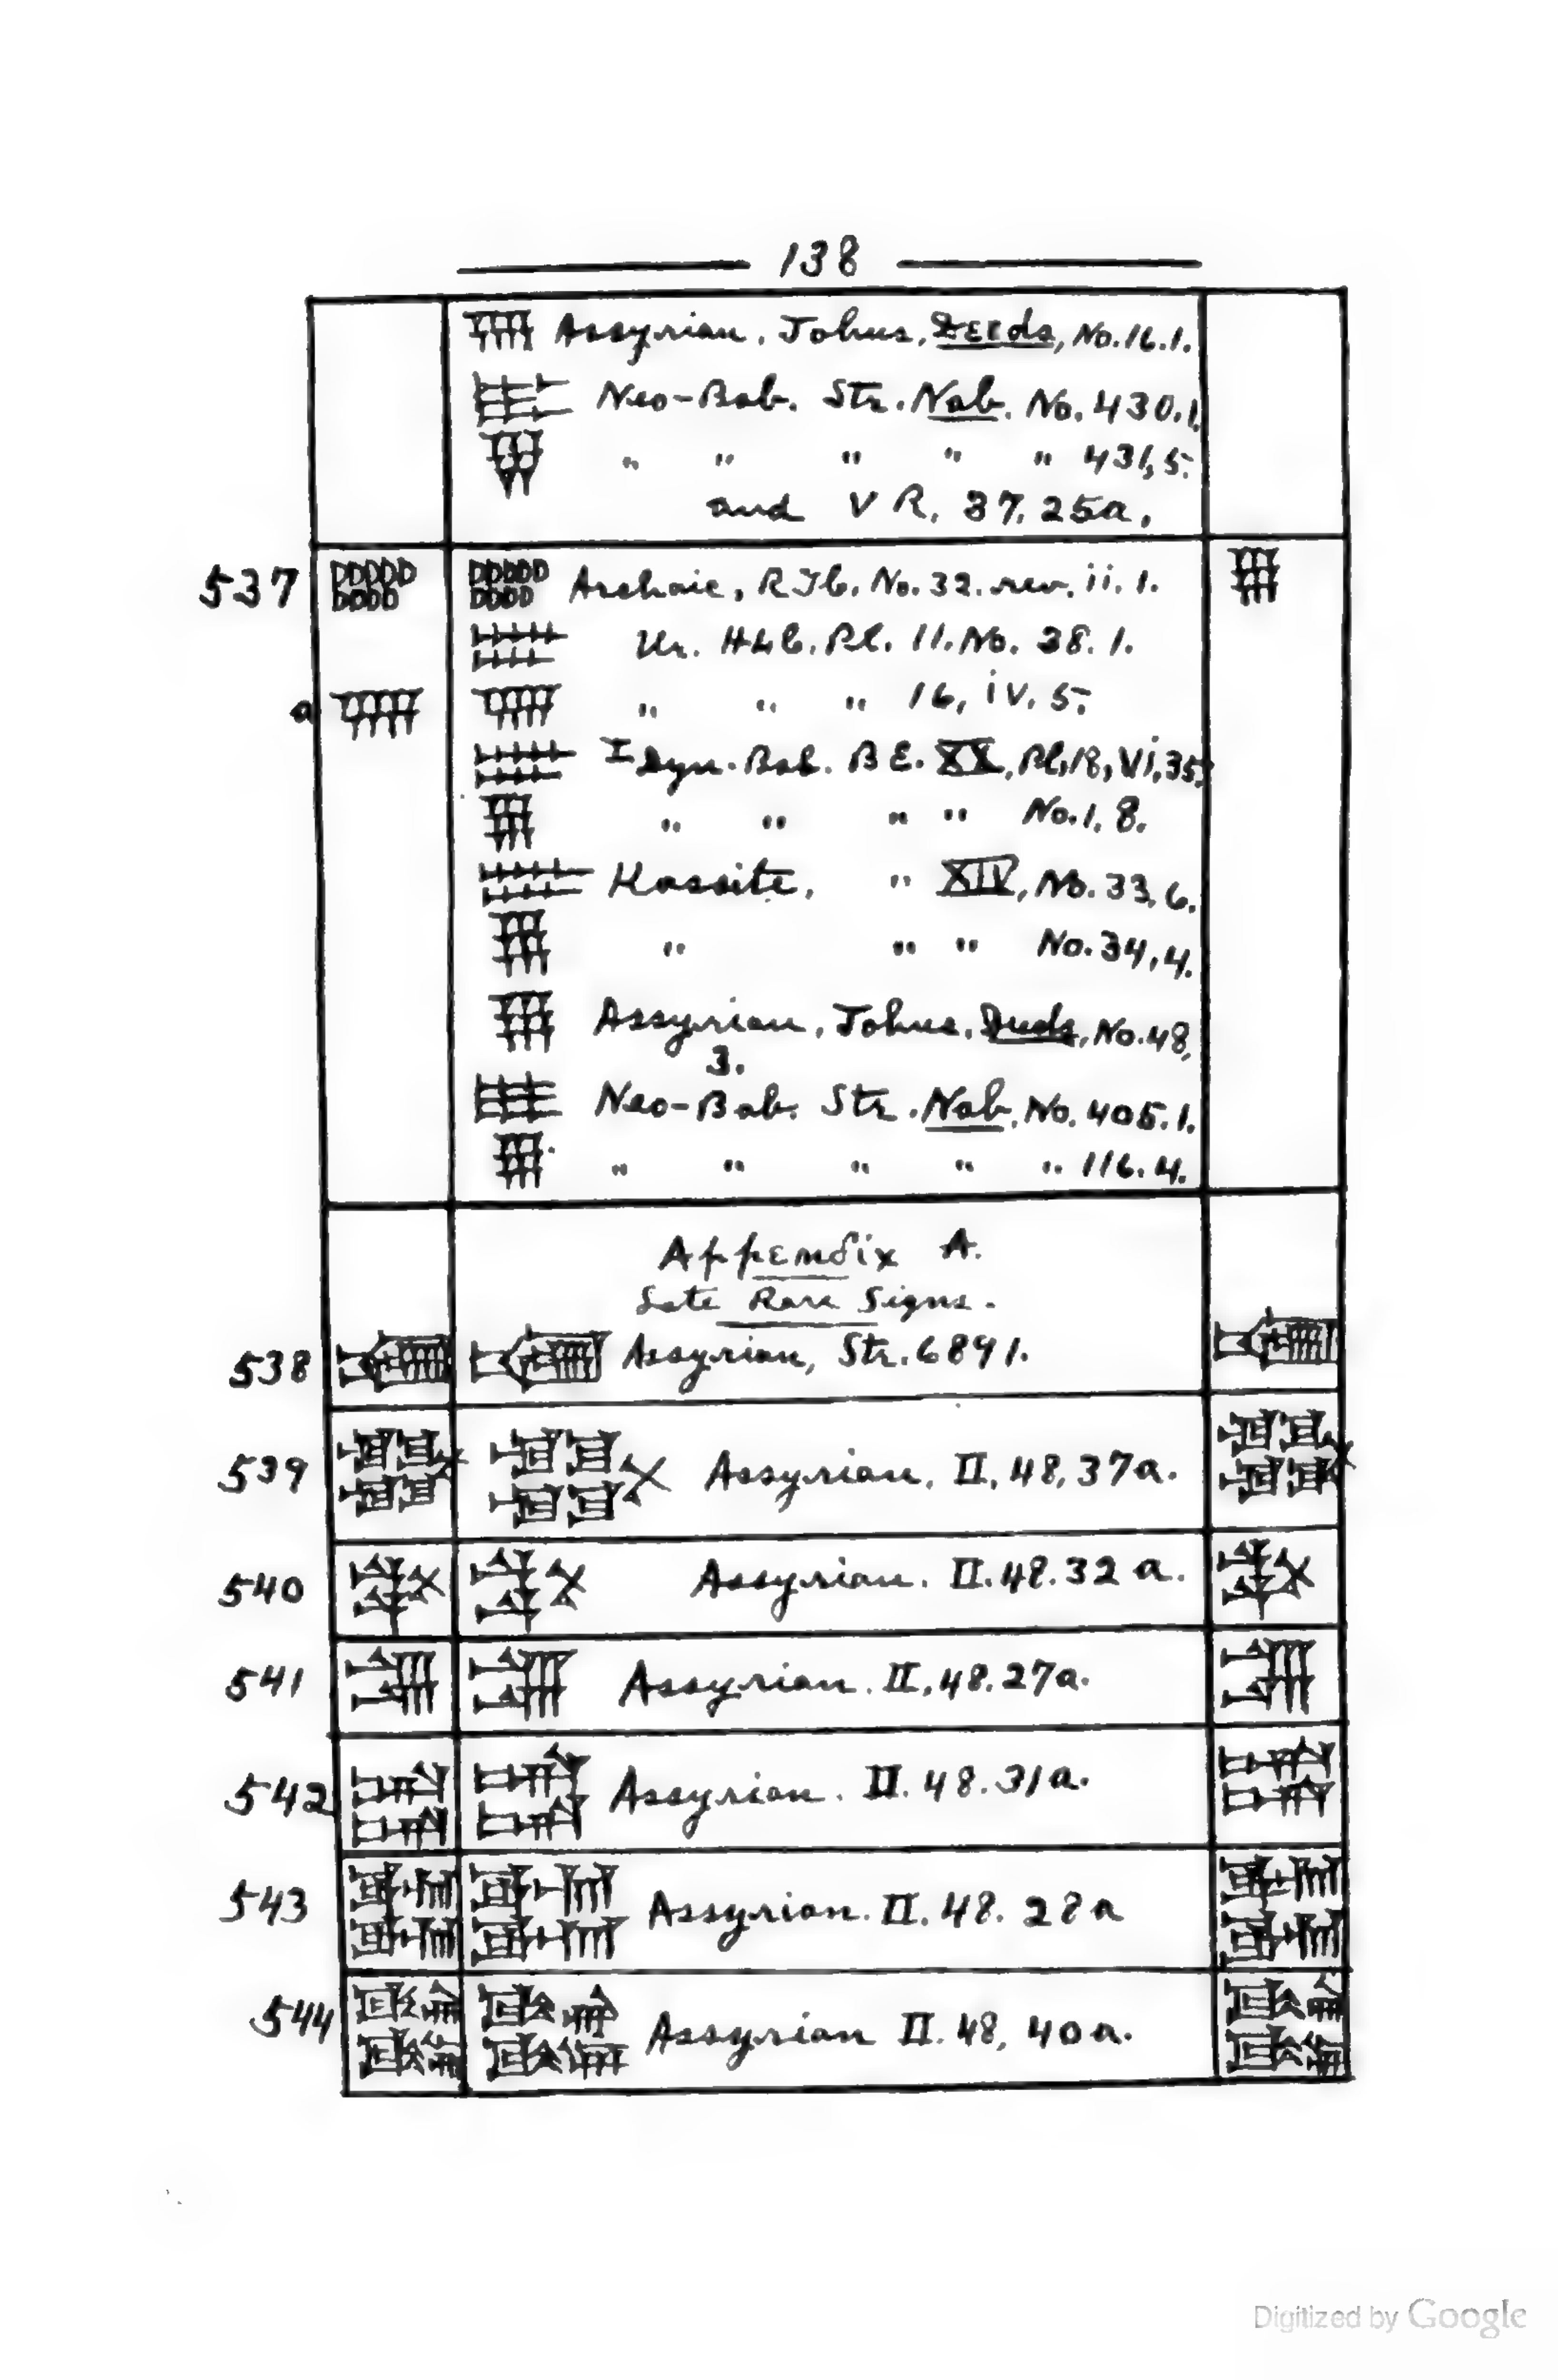 138
Assyrian. Johns, Deeds, No. 16. 1.
Neo-Bab. Str. Nab. No. 430. 1.
" " " " " 431, 5.
and V R, 37, 25a.
537 Archaic, RTC, No. 32. rev. ii. 1.
Ur. HLC. Pl. 11. No. 38. 1.
a " " " 16, iv. 5.
I Dyn. Bab. BE. XX, Pl. 18, Vi, 35.
" " " " No. 1, 8.
Kassite, " XIV, No. 33, 6.
" " " No. 34, 4.
Assyrian, Johns. Deeds, No. 48,
3.
Neo-Bab. Str. Nab. No. 405. 1.
" " " " " 116. 4.
Appendix A.
Late Rare Signs.
538 Assyrian, Str. 6891.
539 Assyrian, II, 48, 37a.
540 Assyrian. II. 48. 32 a.
541 Assyrian. II, 48. 27a.
542 Assyrian. II. 48. 31a.
543 Assyrian. II. 48. 28a
544 Assyrian II. 48, 40a.
Digitized by Google